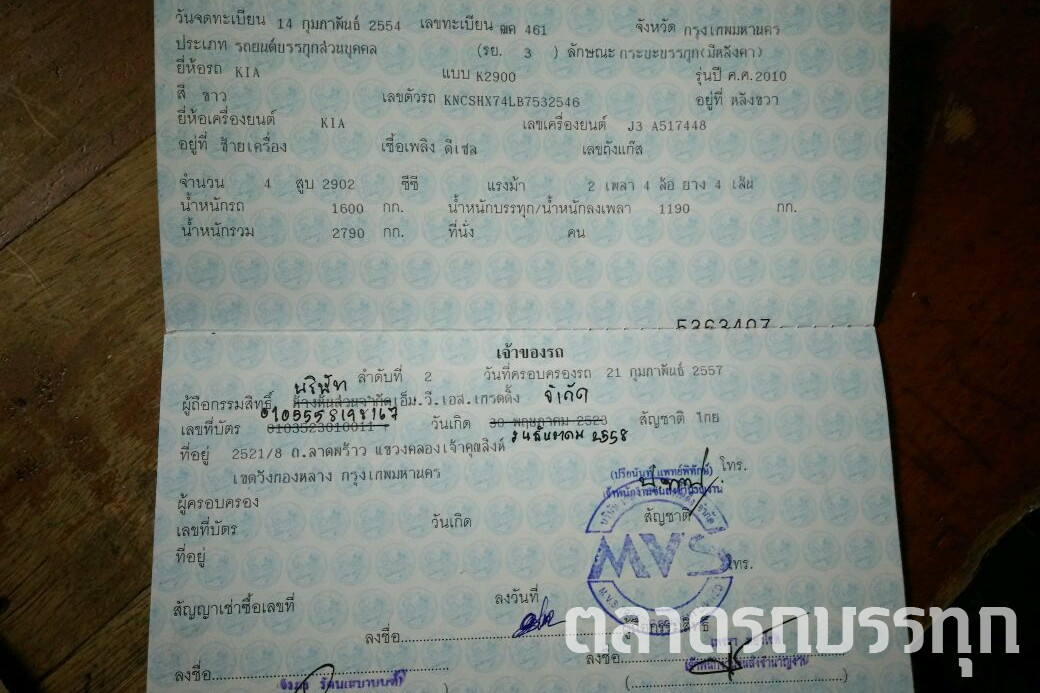 วันจดทะเบียน 14 กุมภาพันธ์ 2554 เลขทะเบียน ฒค 461 จังหวัด กรุงเทพมหานคร
ประเภท รถยนต์บรรทุกส่วนบุคคล (รย. 3 ) ลักษณะ กระบะบรรทุก(มีหลังคา)
ยี่ห้อรถ KIA แบบ K2900 รุ่นปี ค.ศ.2010
สี ขาว เลขตัวรถ KNCSHX74LB7532546 อยู่ที่ หลังขวา
ยี่ห้อเครื่องยนต์ KIA เลขเครื่องยนต์ J3 A517448
อยู่ที่ ซ้ายเครื่อง เชื้อเพลิง ดีเซล เลขถังแก๊ส
จำนวน 4 สูบ 2902 ซีซี แรงม้า 2 เพลา 4 ล้อ ยาง 4 เส้น
น้ำหนักรถ 1600 กก. น้ำหนักบรรทุก/น้ำหนักลงเพลา 1190 กก.
น้ำหนักรวม 2790 กก. ที่นั่ง คน
5363407
เจ้าของรถ
ลำดับที่ 2 วันที่ครอบครองรถ 21 กุมภาพันธ์ 2557
บริษัท
ผู้ถือกรรมสิทธิ์ ห้างหุ้นส่วนจำกัดเอ็ม.วี.เอส.เทรดดิ้ง จำกัด
0105558198167
เลขที่บัตร 0103523010011 วันเกิด 30 พฤษภาคม 2523 สัญชาติ ไทย
ธันวาคม 2558
ที่อยู่ 2521/8 ถ.ลาดพร้าว แขวงคลองเจ้าคุณสิงห์
เขตวังทองหลาง กรุงเทพมหานคร โทร.
ผู้ครอบครอง
เลขที่บัตร วันเกิด สัญชาติ
ที่อยู่
โทร.
MVS
สัญญาเช่าซื้อเลขที่ ลงวันที่
ลงชื่อ ผู้ถือกรรมสิทธิ์
ลงชื่อ ลงชื่อ
ตลาดรถบรรทุก